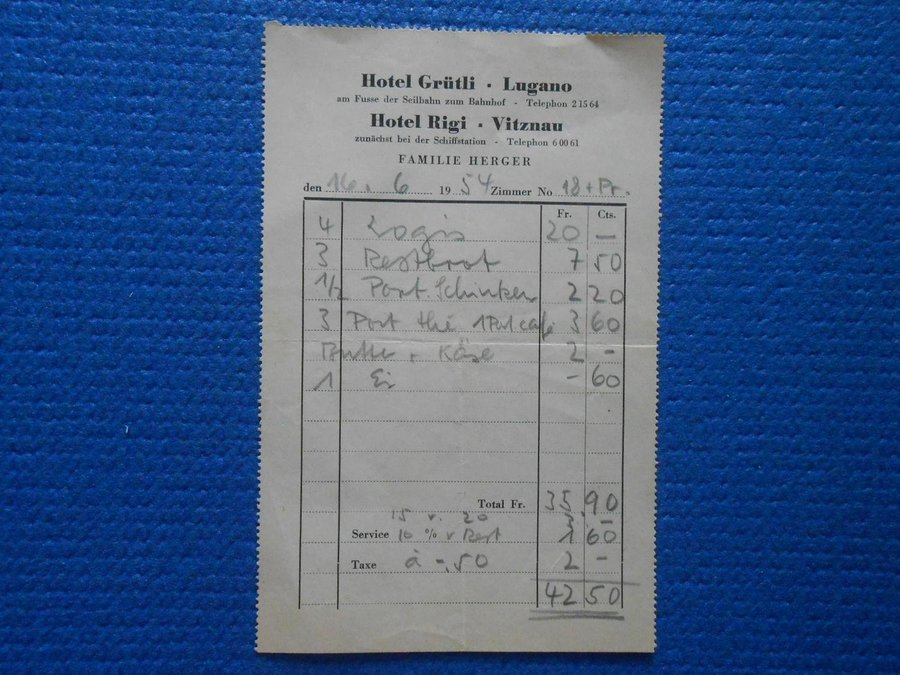 Hotel Grütli · Lugano
am Fusse der Seilbahn zum Bahnhof - Telephon 2 15 64
Hotel Rigi · Vitznau
zunächst bei der Schiffstation - Telephon 6 00 61
FAMILIE HERGER
den 16. 6 1954 Zimmer No 18 + Pr.
Fr. Cts.
4 Logis 20 —
3 Restbrot 7 50
1/2 Port. Schinken 2 20
3 Port thé 1 Port café 3 60
Butter + Käse 2 -
1 Ei - 60
Total Fr. 35.90
15 v. 20 3 —
Service 10 % v Rest 1 60
Taxe à -.50 2 -
42 50